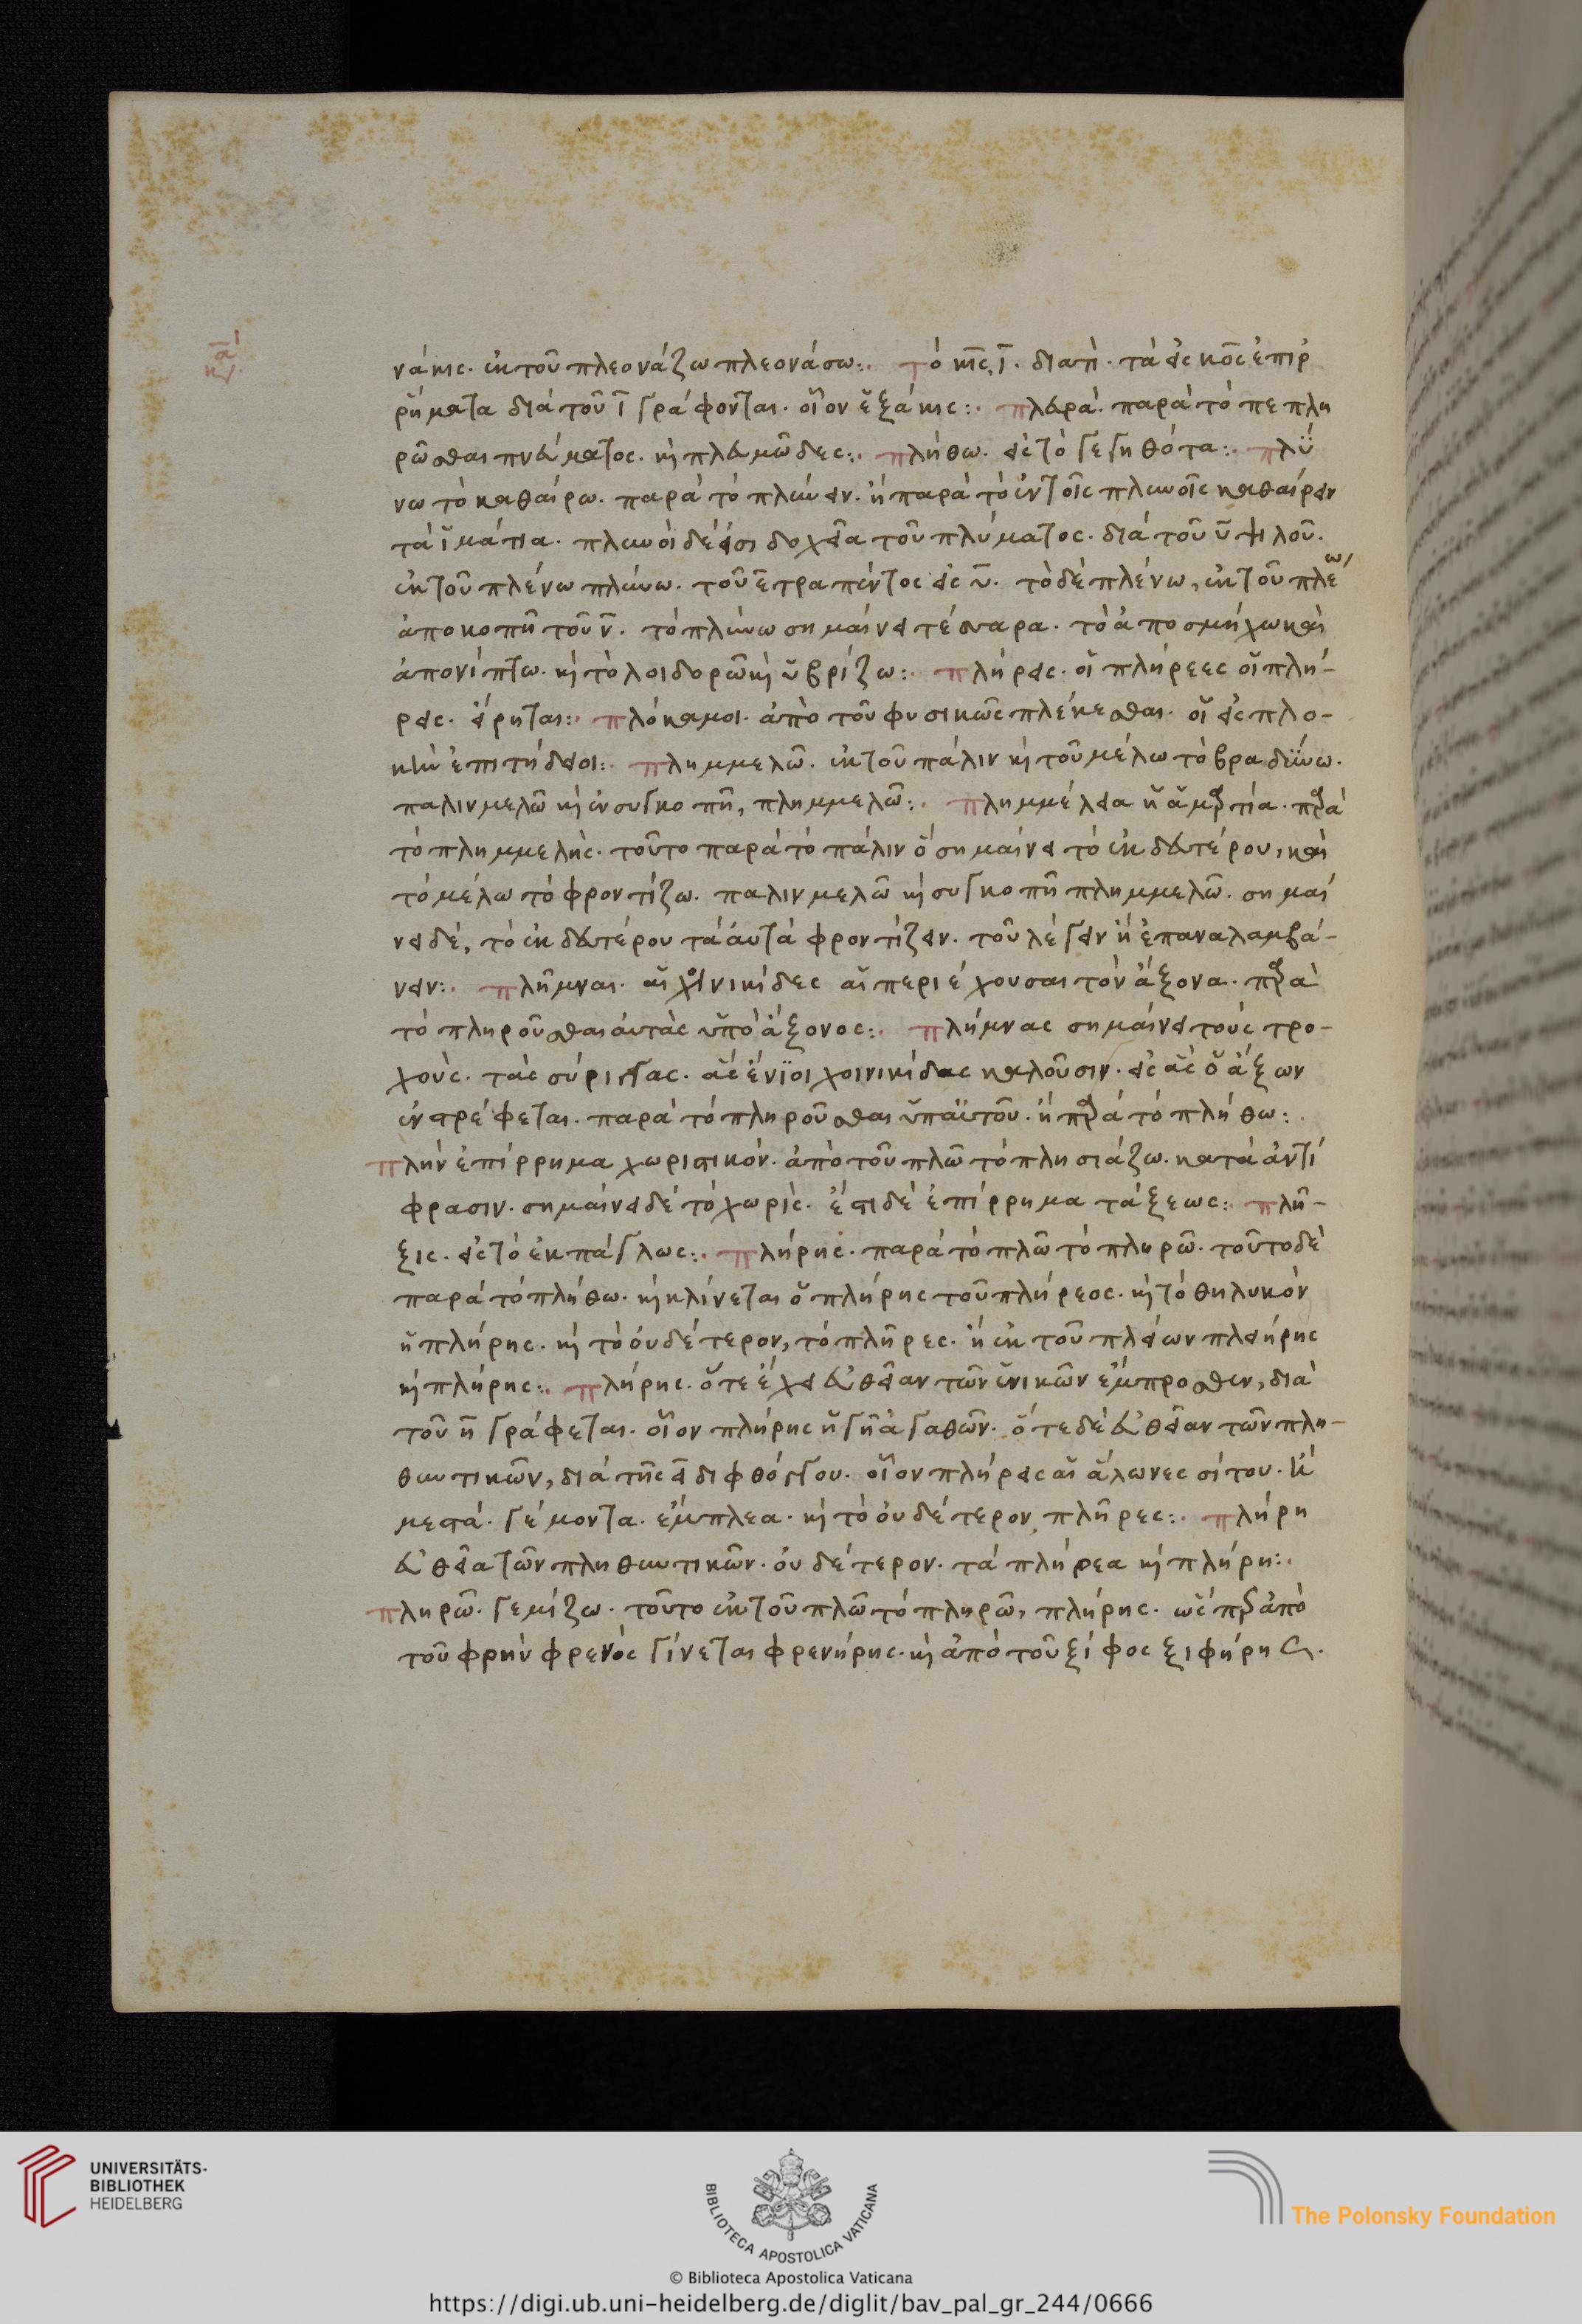 νάκις. ἐκ τοῦ πλεονάζω πλεονάσω:. τὸ κις, ῑ. διατί. τὰ εἰς κος ἐπιρ
ρήματα διὰ τοῦ ῑ γράφονται. οἷον ἑξάκις:. πλευρά. παρὰ τὸ πεπλη
ρῶσθαι πνεύματος. κὶ πλευμῶδες:. πλήθω. εἰς τὸ γεγηθότα:. πλύ
νω τὸ καθαίρω. παρὰ τὸ πλύνειν. ἢ παρὰ τὸ ἐν τοῖς πλυνοῖς καθαίρειν
τὰ ἱμάτια. πλυνοὶ δέ εἰσι δοχεῖα τοῦ πλύματος. διὰ τοῦ ῡ ψιλοῦ.
ἐκ τοῦ πλένω πλύνω. τοῦ ε̄ τραπέντος εἰς ῡ. τὸ δὲ πλένω, ἐκ τοῦ πλέω
ἀποκοπῆ τοῦ ν̄. τὸ πλύνω σημαίνει τέσσαρα. τὸ ἀποσμήχω καὶ
ἀπονίπτω. κὶ τὸ λοιδορῶ κὶ ὑβρίζω:. πλήρεις. οἱ πλήρεες οἱ πλή-
ρεις. εἴρηται:. πλόκαμοι. ἀπὸ τοῦ φυσικῶς πλέκεσθαι. οἱ εἰς πλο-
κὴν ἐπιτήδειοι:. πλημμελῶ. ἐκ τοῦ πάλιν κὶ τοῦ μέλω τὸ βραδύνω.
παλινμελῶ κὶ ἐν συγκοπῆ, πλημμελῶ:. πλημμέλεια ἡ ἁμαρτία. παρὰ
τὸ πλημμελής. τοῦτο παρὰ τὸ πάλιν ὃ σημαίνει τὸ ἐκ δευτέρου, καὶ
τὸ μέλω τὸ φροντίζω. παλινμελῶ κὶ συγκοπῆ πλημμελῶ. σημαί
νει δέ, τὸ ἐκ δευτέρου τὰ αὐτὰ φροντίζειν. τοῦ λέγειν ἢ ἐπαναλαμβά-
νειν:. πλῆμναι. αἱ χοινικίδες αἱ περιέχουσαι τὸν ἄξονα. παρὰ
τὸ πληροῦσθαι αὐτὰς ὑπὸ ἄξονος:. πλήμνας σημαίνει τοὺς τρο-
χούς. τὰς σύριγγας. ἃς ἔνιοι χοινικίδας καλοῦσιν. εἰς ἃς ὁ ἄξων
ἐνστρέφεται. παρὰ τὸ πληροῦσθαι ὑπ' αὐτοῦ. ἢ παρὰ τὸ πλήθω:.
πλὴν ἐπίρρημα χωριστικόν. ἀπὸ τοῦ πλῶ τὸ πλησιάζω. κατὰ ἀντί
φρασιν. σημαίνει δὲ τὸ χωρίς. ἔστι δὲ ἐπίρρημα τάξεως:. πλῆ-
ξις. εἰς τὸ ἐκπάγλως:. πλήρης. παρὰ τὸ πλῶ τὸ πληρῶ. τοῦτο δὲ
παρὰ τὸ πλήθω. κὶ κλίνεται ὁ πλήρης τοῦ πλήρεος. κὶ τὸ θηλυκὸν
ἡ πλήρης. κὶ τὸ οὐδέτερον, τὸ πλῆρες. ἢ ἐκ τοῦ πλείων πλειήρης
κὶ πλήρης:. πλήρης. ὅτε ἔχει εὐθεῖαν τῶν ἑνικῶν ἔμπροσθεν, διὰ
τοῦ η̄ γράφεται. οἷον πλήρης ἡ γῆ ἀγαθῶν. ὅτε δὲ εὐθεῖαν τῶν πλη-
θυντικῶν, διὰ τῆς ει διφθόγγου. οἷον πλήρεις αἱ ἅλωνες σίτου. κὶ
μεστά. γέμοντα. ἔμπλεα. κὶ τὸ οὐδέτερον, πλῆρες:. πλήρη
εὐθεῖα τῶν πληθυντικῶν. οὐδέτερον. τὰ πλήρεα κὶ πλήρη:.
πληρῶ. γεμίζω. τοῦτο ἐκ τοῦ πλῶ τὸ πληρῶ, πλήρης. ὥσπερ ἀπὸ
τοῦ φρὴν φρενὸς γίνεται φρενήρης. κὶ ἀπὸ τοῦ ξίφος ξιφήρης.
UNIVERSITÄTS-
BIBLIOTHEK
HEIDELBERG
BIBLIOTECA APOSTOLICA VATICANA
The Polonsky Foundation
© Biblioteca Apostolica Vaticana
https://digi.ub.uni-heidelberg.de/diglit/bav_pal_gr_244/0666